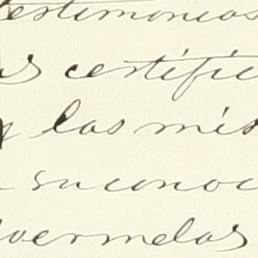 testimonios
s certific
y las mis
su conoc
vermelas